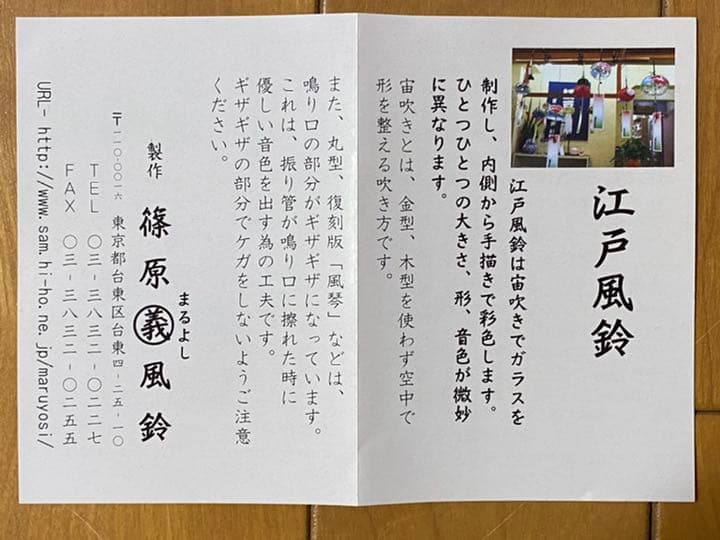 江戸風鈴
江戸風鈴は宙吹きでガラスを
制作し、内側から手描きで彩色します。
ひとつひとつの大きさ、形、音色が微妙
に異なります。
宙吹きとは、金型、木型を使わず空中で
形を整える吹き方です。
また、丸型、復刻版「風琴」などは、
鳴り口の部分がギザギザになっています。
これは、振り管が鳴り口に擦れた時に
優しい音色を出す為の工夫です。
ギザギザの部分でケガをしないようご注意
ください。
製作 篠原㊕風鈴
まるよし
〒一一〇〇〇一六 東京都台東区台東四-二五-一〇
TEL 〇三-三八三二-〇二二七
FAX 〇三-三八三二-〇二五五
URL- http://www.sam.hi-ho.ne.jp/maruyosi/